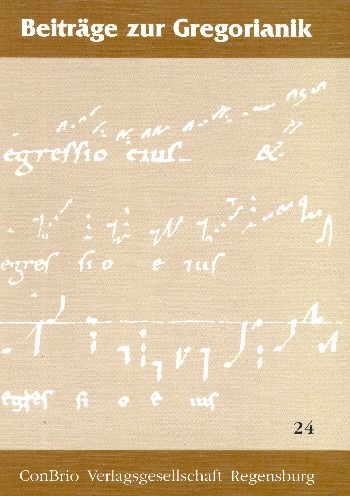 Beiträge zur Gregorianik
egressio eius &
egres sio e ius
egres si o e ius
24
ConBrio Verlagsgesellschaft Regensburg